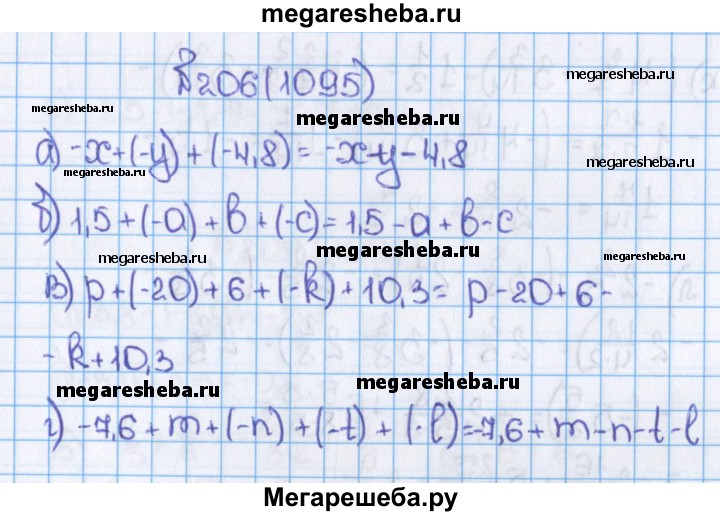 megaresheba.ru
№206(1095)
megaresheba.ru
megaresheba.ru
megaresheba.ru
а) -x+(-y)+(-4,8)= -x-y-4,8
megaresheba.ru
megaresheba.ru
б) 1,5+(-a)+b+(-c)=1,5-a+b-c
megaresheba.ru
megaresheba.ru
megaresheba.ru
в) p+(-20)+6+(-k)+10,3= p-20+6-
-k+10,3
megaresheba.ru
megaresheba.ru
г) -7,6+m+(-n)+(-t)+(-l)=-7,6+m-n-t-l
Мегарешеба.ру